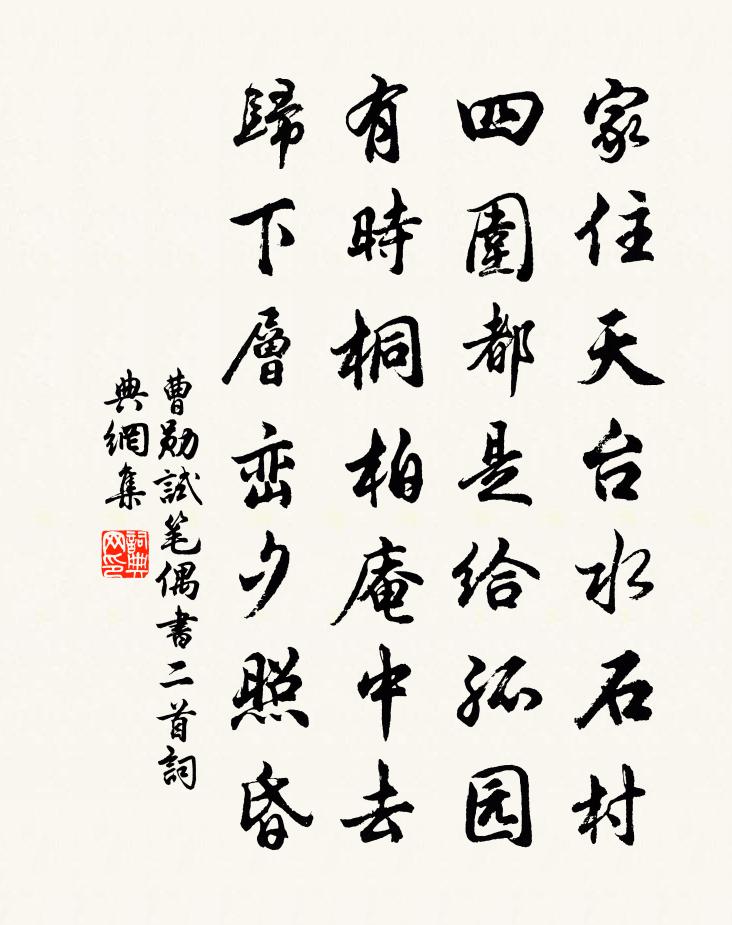 家住天台水石村
四圍都是給孤园
有時桐柏庵中去
歸下層巒夕照昏
曹勛試笔偶書二首詞
典網集
詞典网印